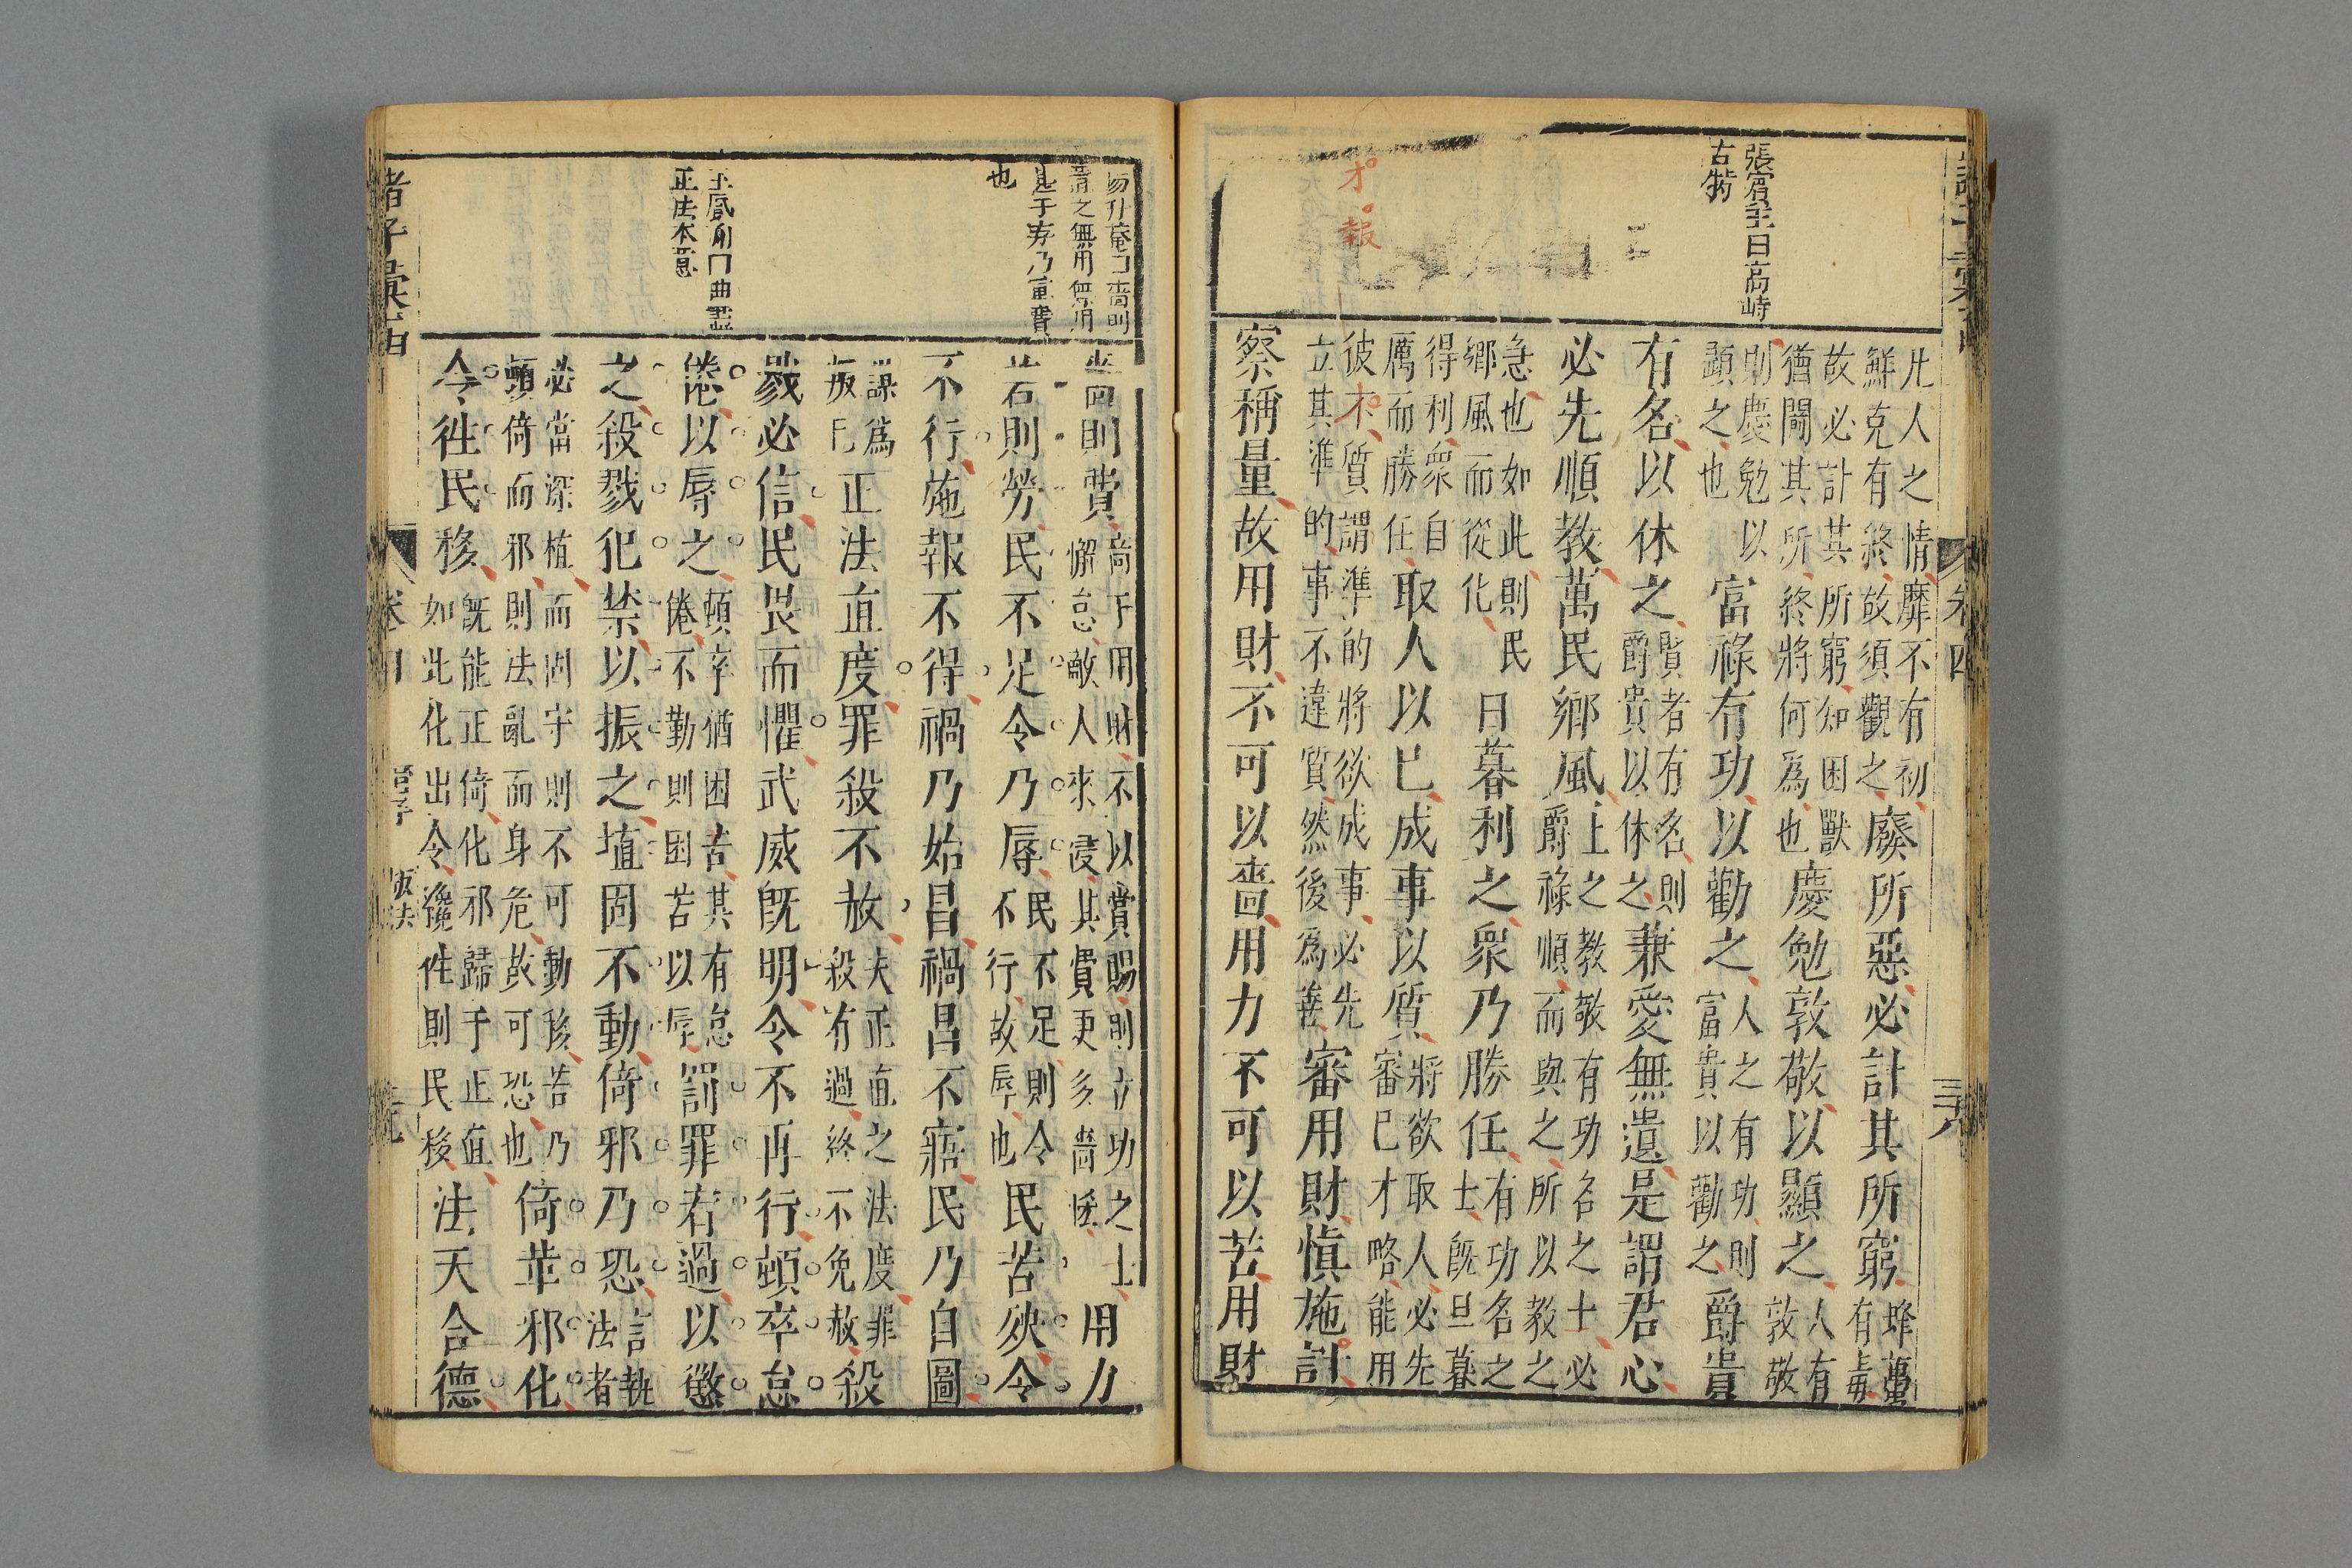 張賓王曰高峙
古勢
凡人之情靡不有初
鮮克有終故須觀之廢所惡必計其所窮蜂蠆
有毒
故必計其所窮知困獸
猶鬪其所終將何為也慶勉敦敬以顯之人有
敦敬
則慶勉以
顯之也富祿有功以勸之人之有功則
富貴以勸之爵貴
有名以休之賢者有名則
爵貴以休之兼愛無遺是謂君心
必先順教萬民鄉風上之教敬有功名之士必
爵祿順而與之所以教之
急也如此則民
鄉風而從化旦暮利之衆乃勝任有功名之
士既旦暮
得利衆自
厲而勝任取人以已成事以質將欲取人必先
審已才略能用
彼不質謂準的將欲成事必先
立其準的事不違質然後為善審用財慎施計
察稱量故用財不可以嗇用力不可以苦用財
才報
卷四
嗇則費嗇于用財不以賞賜則立功之士
懈怠敵人來侵其費更多嗇用力
苦則勞民不足令乃辱民不足則令
不行故辱也民苦殃令
不行施報不得禍乃始昌禍昌不寤民乃自圖
謀為
叛正法直度罪殺不赦夫正直之法度罪
殺有過終不免赦殺
戮必信民畏而懼武威既明令不再行頓卒怠
倦以辱之頓卒猶困苦其有怠
倦不勤則困苦以辱罰罪宥過以懲
之殺戮犯禁以振之埴固不動倚邪乃恐言執
法者
必當深植而固守則不可動移苦乃
頭倚而邪則法亂而身危故可恐也倚革邪化
令徃民移既能正倚化邪歸于正直
如此化出令纔徃則民移法天合德
也
王鳳洲曰曲盡
正法本意
諸子彙函
管子
版法